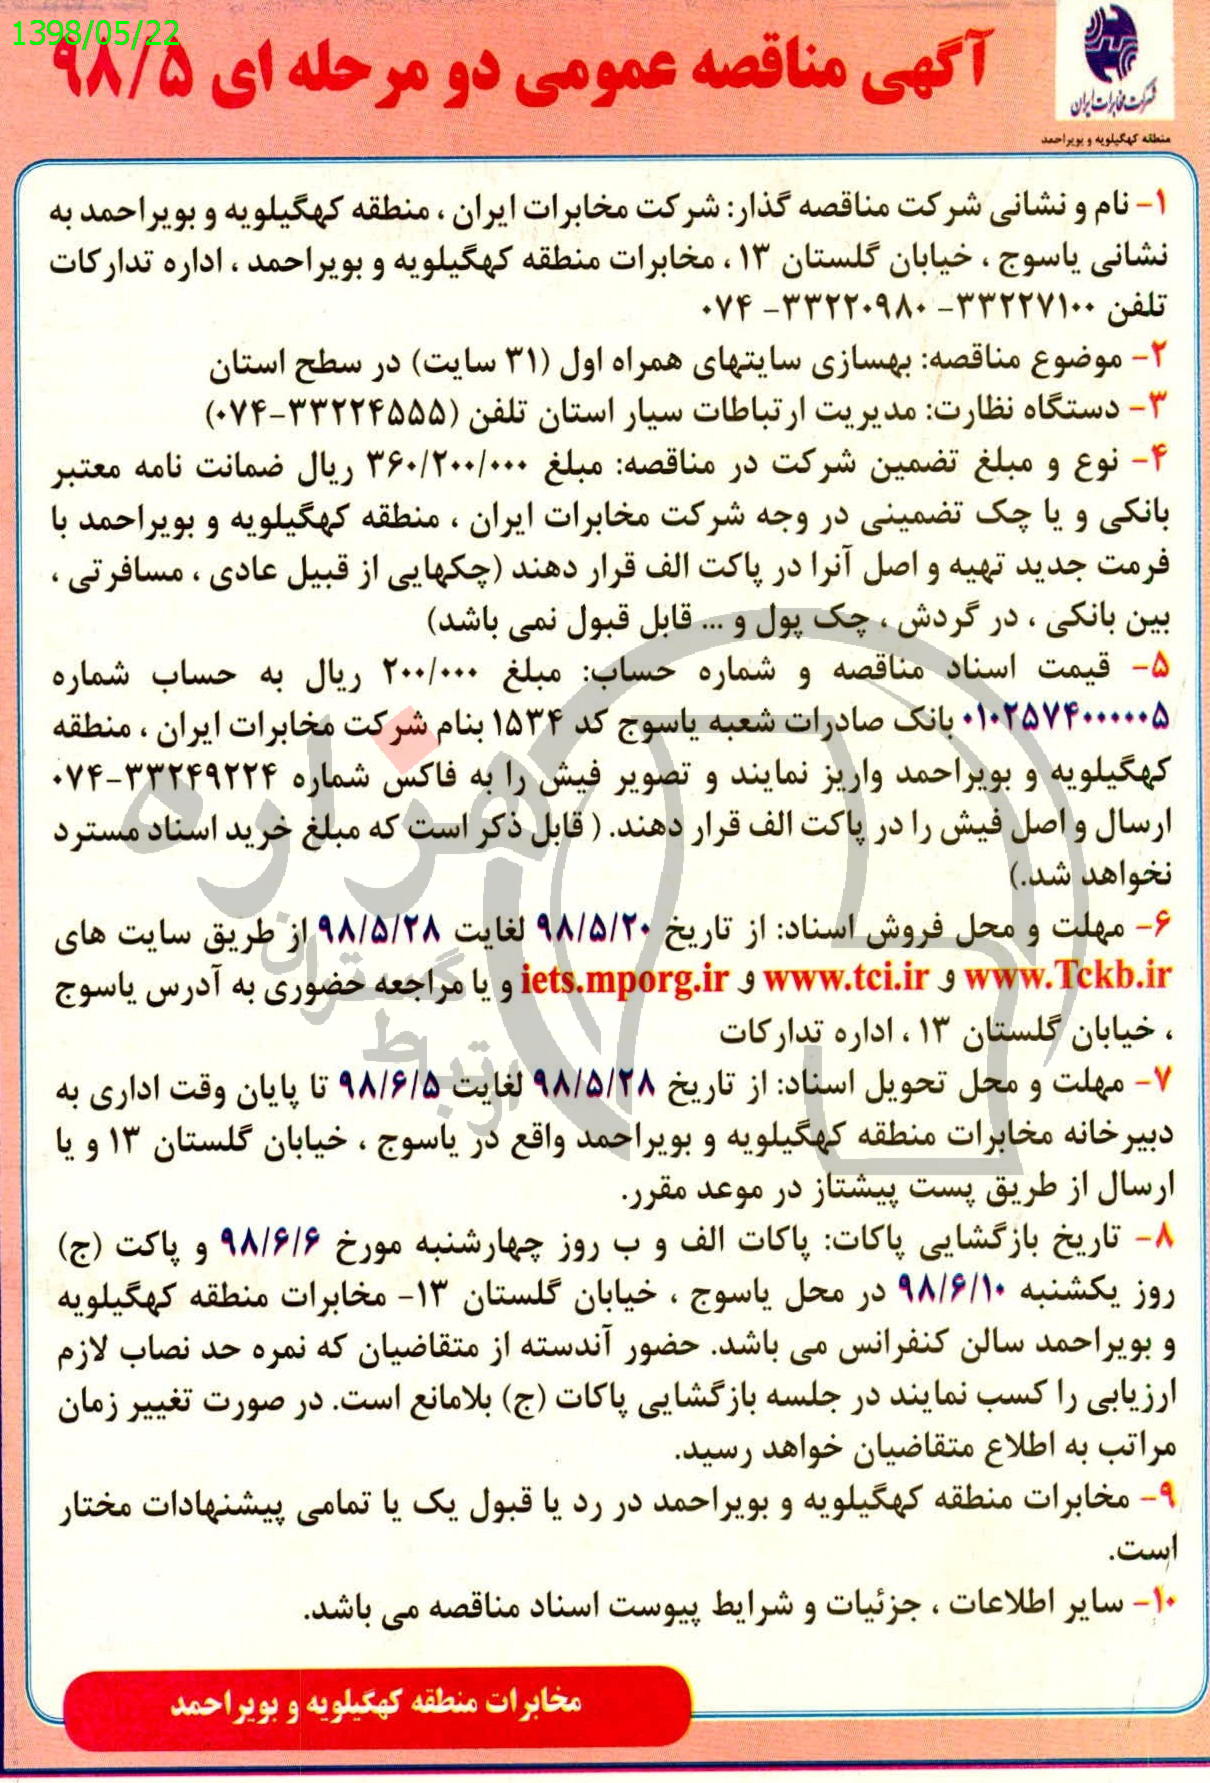 1398/05/22
آگهی مناقصه عمومی دو مرحله ای ۹۸/۵
شرکت مخابرات ایران
منطقه کهگیلویه و بویراحمد
۱- نام و نشانی شرکت مناقصه گذار: شرکت مخابرات ایران ، منطقه کهگیلویه و بویراحمد به
نشانی یاسوج ، خیابان گلستان ۱۳ ، مخابرات منطقه کهگیلویه و بویراحمد ، اداره تدارکات
تلفن ۳۳۲۲۷۱۰۰- ۳۳۲۲۰۹۸۰- ۰۷۴
۲- موضوع مناقصه: بهسازی سایتهای همراه اول (۳۱ سایت) در سطح استان
۳- دستگاه نظارت: مدیریت ارتباطات سیار استان تلفن (۳۳۲۲۴۵۵۵-۰۷۴)
۴- نوع و مبلغ تضمین شرکت در مناقصه: مبلغ ۳۶۰/۲۰۰/۰۰۰ ریال ضمانت نامه معتبر
بانکی و یا چک تضمینی در وجه شرکت مخابرات ایران ، منطقه کهگیلویه و بویراحمد با
فرمت جدید تهیه و اصل آنرا در پاکت الف قرار دهند (چکهایی از قبیل عادی ، مسافرتی ،
بین بانکی ، در گردش ، چک پول و ... قابل قبول نمی باشد)
۵- قیمت اسناد مناقصه و شماره حساب: مبلغ ۲۰۰/۰۰۰ ریال به حساب شماره
۰۱۰۲۵۷۴۰۰۰۰۰۵ بانک صادرات شعبه یاسوج کد ۱۵۳۴ بنام شرکت مخابرات ایران ، منطقه
کهگیلویه و بویراحمد واریز نمایند و تصویر فیش را به فاکس شماره ۳۳۲۴۹۲۲۴-۰۷۴
ارسال و اصل فیش را در پاکت الف قرار دهند. ( قابل ذکر است که مبلغ خرید اسناد مسترد
نخواهد شد.)
۶- مهلت و محل فروش اسناد: از تاریخ ۹۸/۵/۲۰ لغایت ۹۸/۵/۲۸ از طریق سایت های
www.Tckb.ir و www.tci.ir و iets.mporg.ir و یا مراجعه حضوری به آدرس یاسوج
، خیابان گلستان ۱۳ ، اداره تدارکات
۷- مهلت و محل تحویل اسناد: از تاریخ ۹۸/۵/۲۸ لغایت ۹۸/۶/۵ تا پایان وقت اداری به
دبیرخانه مخابرات منطقه کهگیلویه و بویراحمد واقع در یاسوج ، خیابان گلستان ۱۳ و یا
ارسال از طریق پست پیشتاز در موعد مقرر.
۸- تاریخ بازگشایی پاکات: پاکات الف و ب روز چهارشنبه مورخ ۹۸/۶/۶ و پاکت (ج)
روز یکشنبه ۹۸/۶/۱۰ در محل یاسوج ، خیابان گلستان ۱۳- مخابرات منطقه کهگیلویه
و بویراحمد سالن کنفرانس می باشد. حضور آندسته از متقاضیان که نمره حد نصاب لازم
ارزیابی را کسب نمایند در جلسه بازگشایی پاکات (ج) بلامانع است. در صورت تغییر زمان
مراتب به اطلاع متقاضیان خواهد رسید.
۹- مخابرات منطقه کهگیلویه و بویراحمد در رد یا قبول یک یا تمامی پیشنهادات مختار
است.
۱۰- سایر اطلاعات ، جزئیات و شرایط پیوست اسناد مناقصه می باشد.
مخابرات منطقه کهگیلویه و بویراحمد
هزاره
گسترش
ارتباط